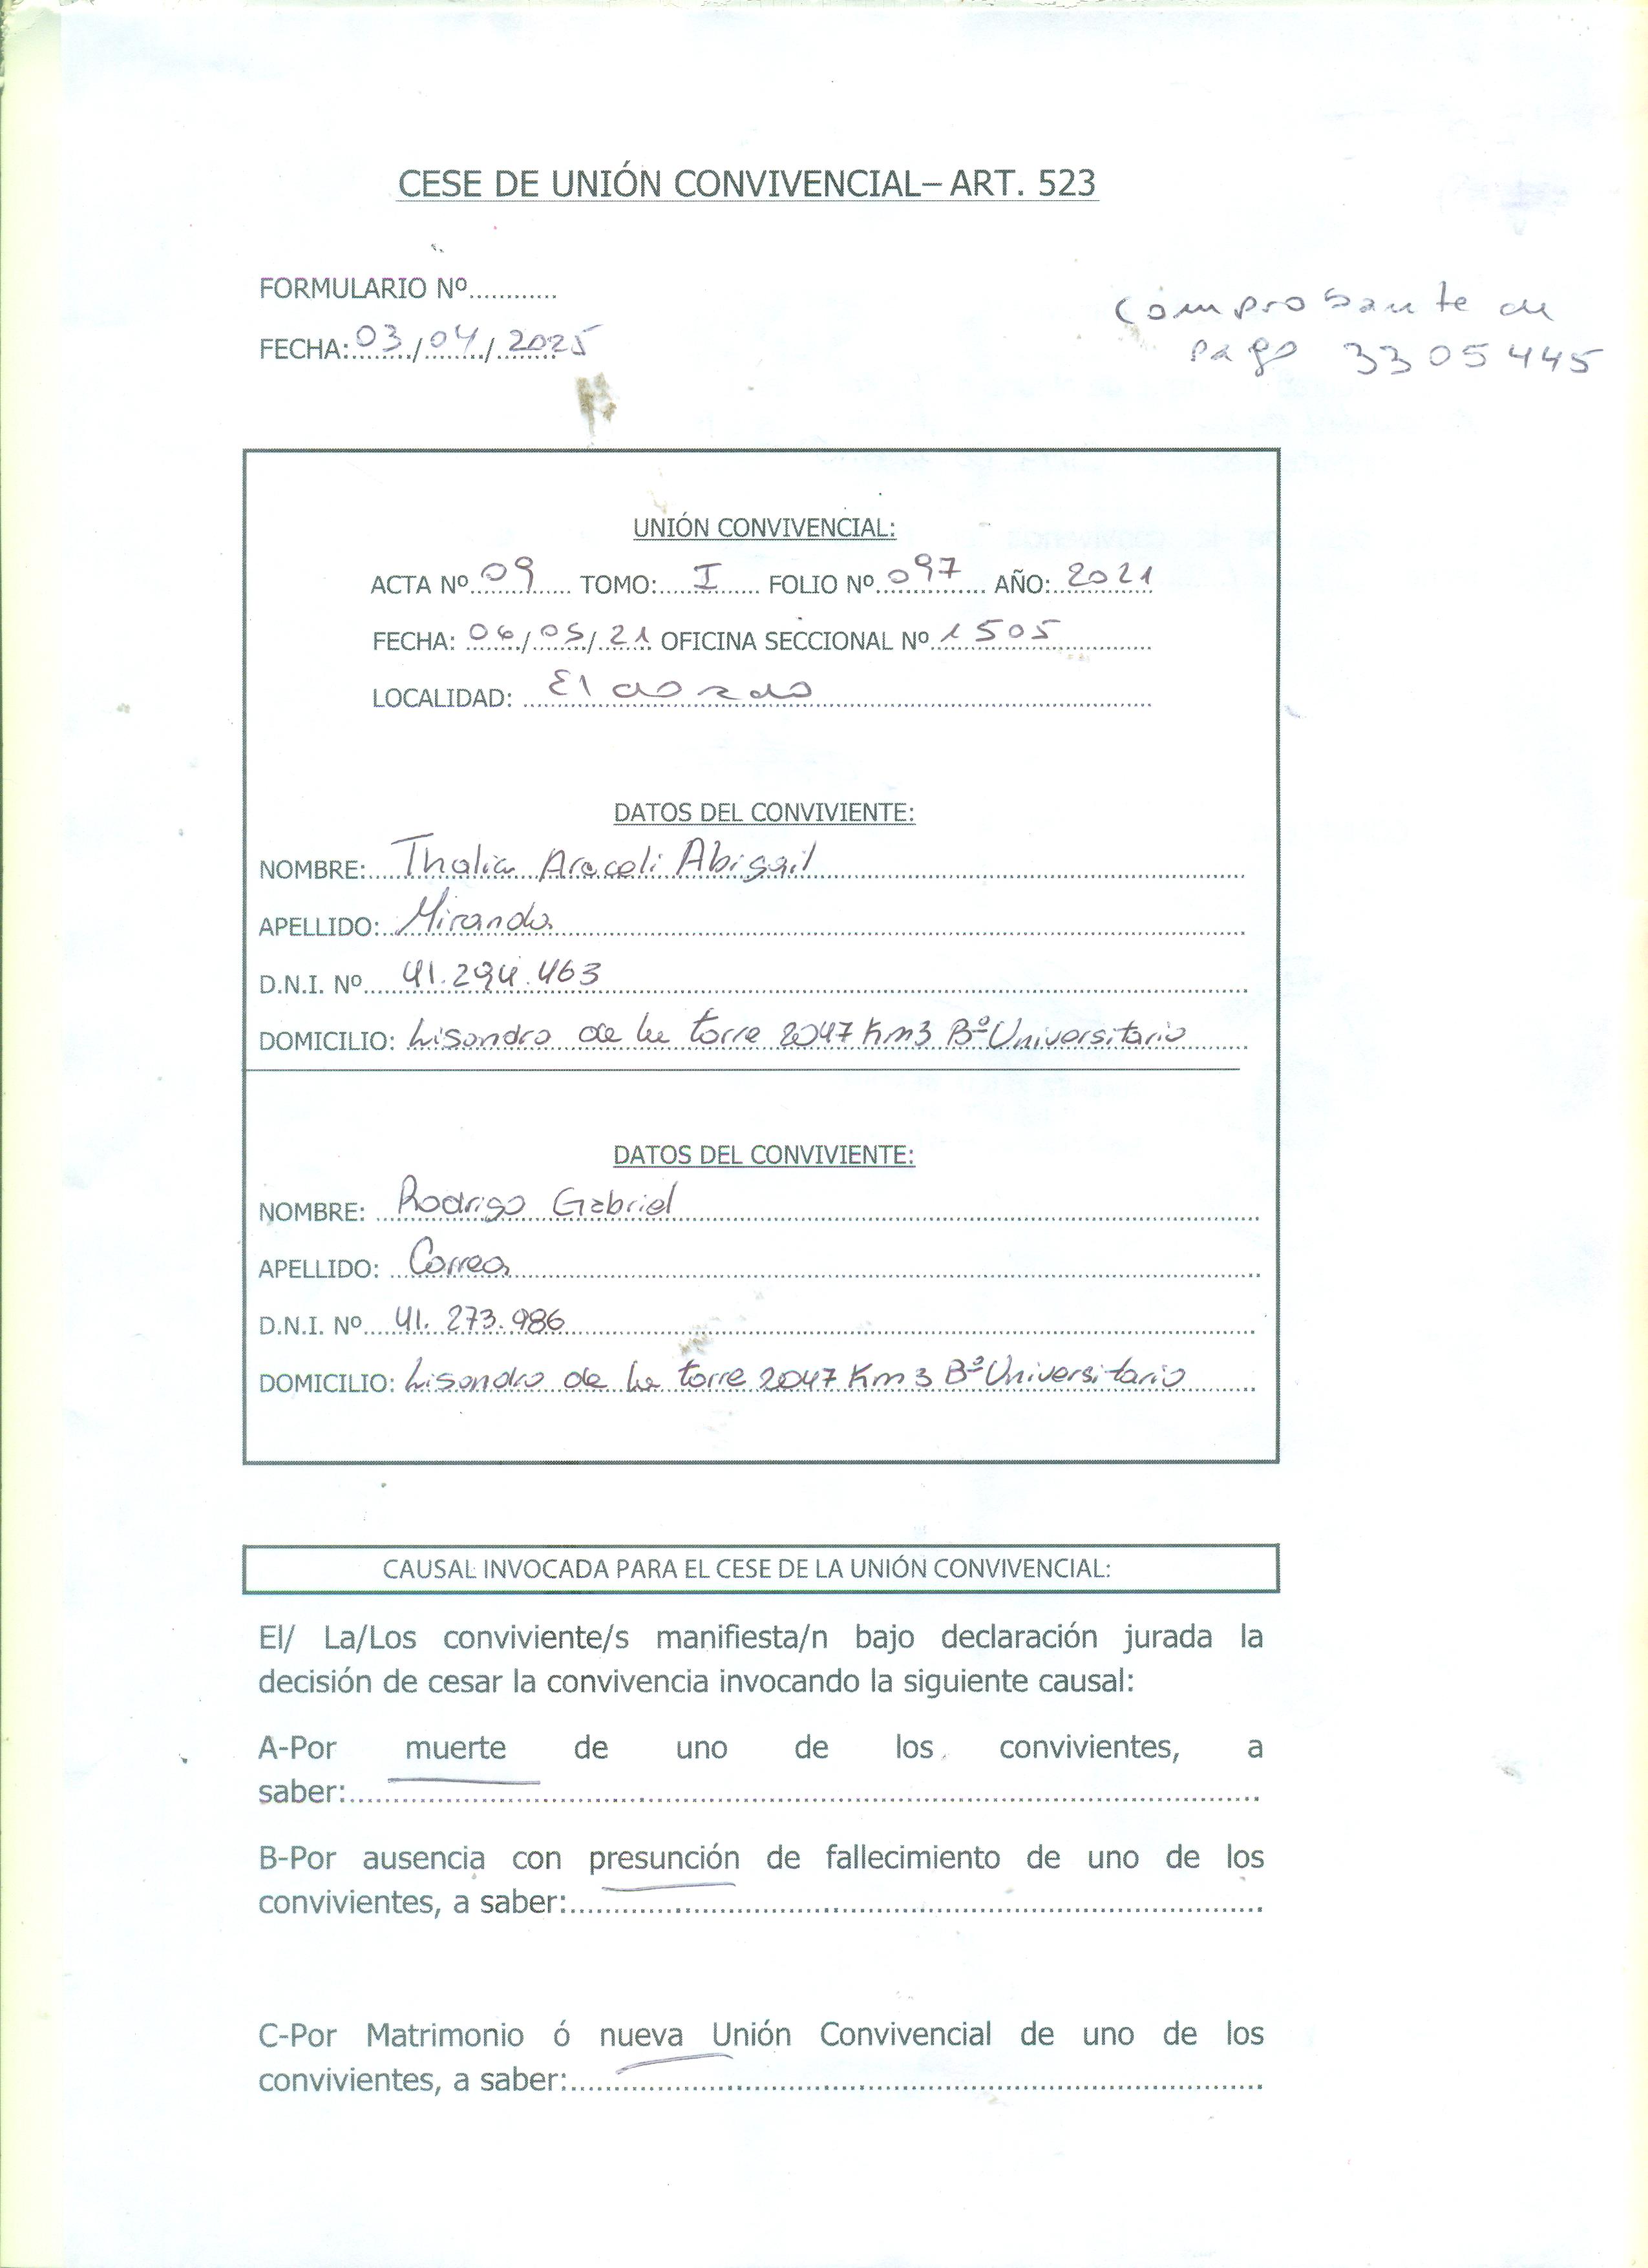 CESE DE UNIÓN CONVIVENCIAL– ART. 523
FORMULARIO Nº............
FECHA: 03/04/2025
Comprobante de
pago 3305445
UNIÓN CONVIVENCIAL:
ACTA Nº 09 TOMO: I FOLIO Nº 097 AÑO: 2021
FECHA: 06/05/21 OFICINA SECCIONAL Nº 1505
LOCALIDAD: Eldorado
DATOS DEL CONVIVIENTE:
NOMBRE: Thalia Araceli Abigail
APELLIDO: Miranda
D.N.I. Nº 41.294.463
DOMICILIO: Lisandro de la torre 2047 Km3 Bº Universitario
DATOS DEL CONVIVIENTE:
NOMBRE: Rodrigo Gabriel
APELLIDO: Correa
D.N.I. Nº 41.273.986
DOMICILIO: Lisandro de la torre 2047 Km 3 Bº Universitario
CAUSAL INVOCADA PARA EL CESE DE LA UNIÓN CONVIVENCIAL:
El/ La/Los conviviente/s manifiesta/n bajo declaración jurada la
decisión de cesar la convivencia invocando la siguiente causal:
A-Por muerte de uno de los convivientes, a
saber:
B-Por ausencia con presunción de fallecimiento de uno de los
convivientes, a saber:
C-Por Matrimonio ó nueva Unión Convivencial de uno de los
convivientes, a saber: